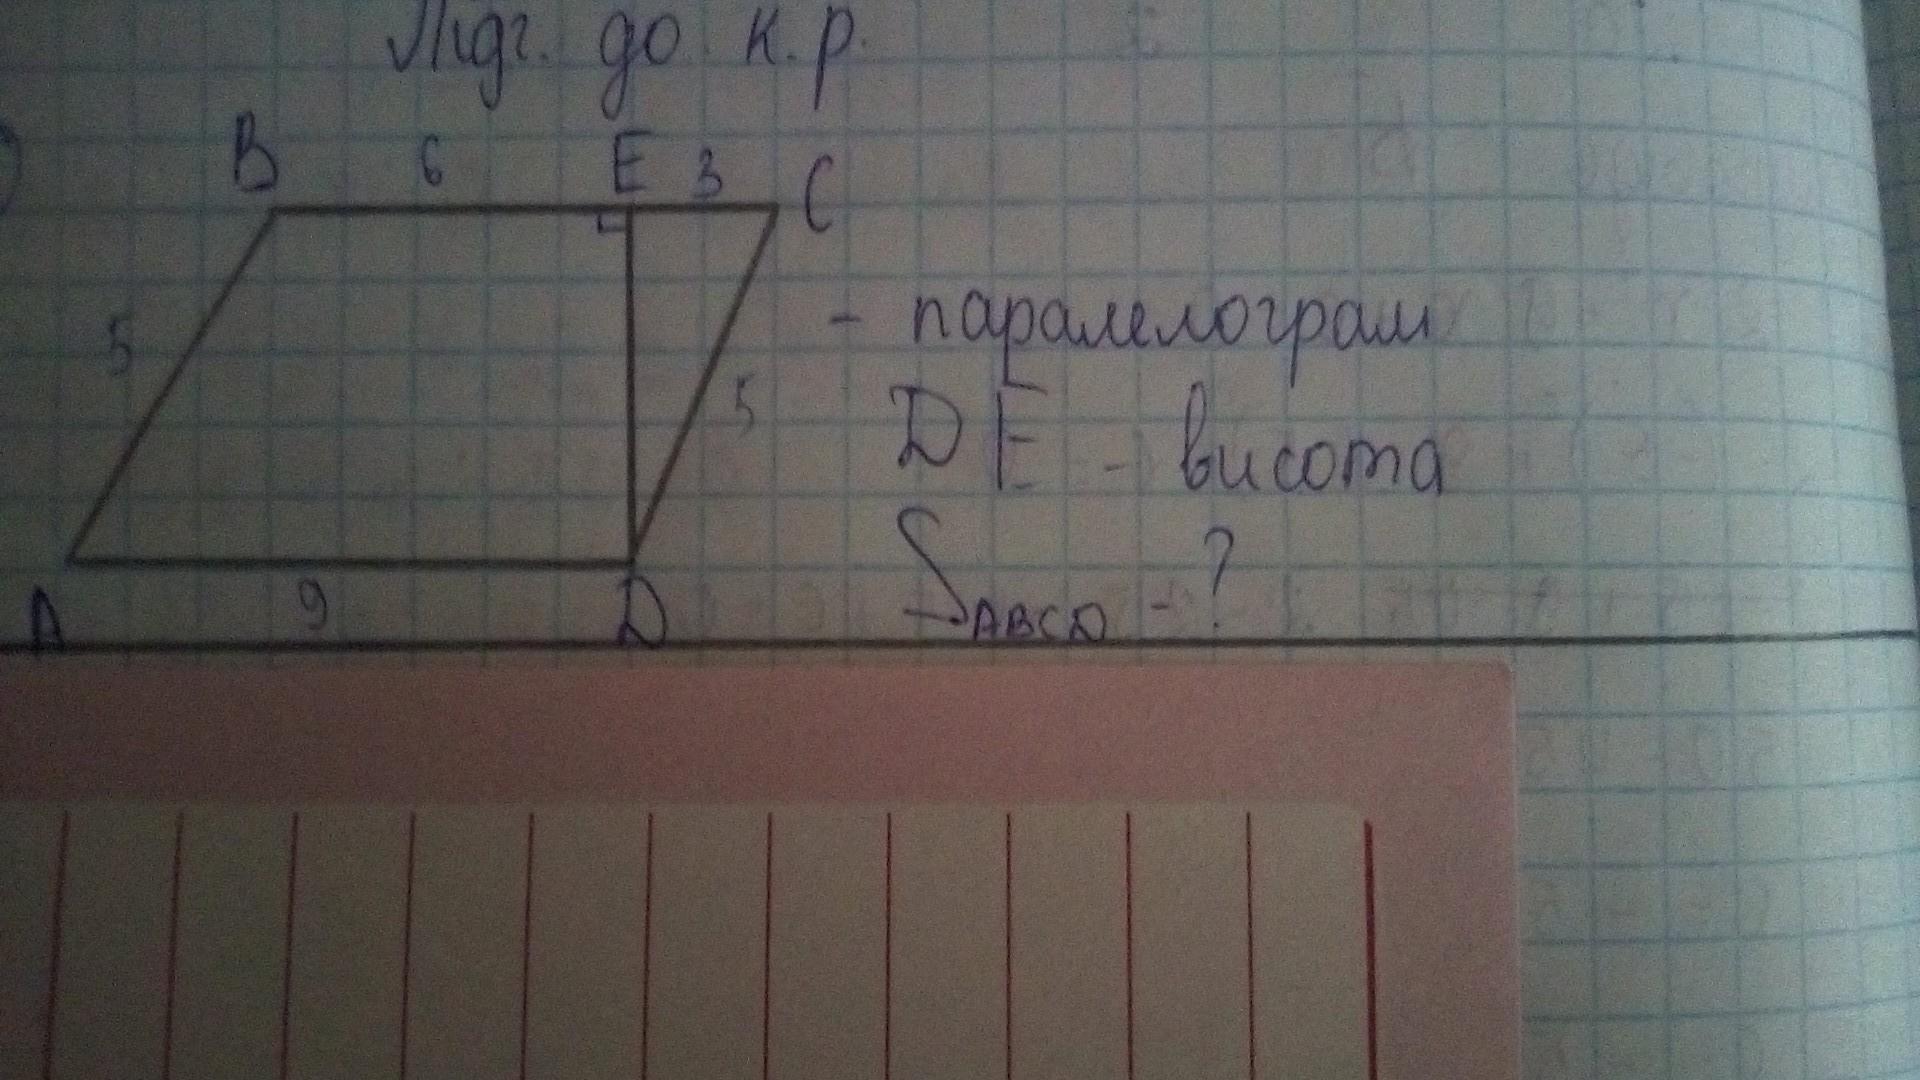 Підг. до к. р.
B 6 E 3 C
5
- паралелограм
5
DE - висота
S ABCD - ?
A 9 D